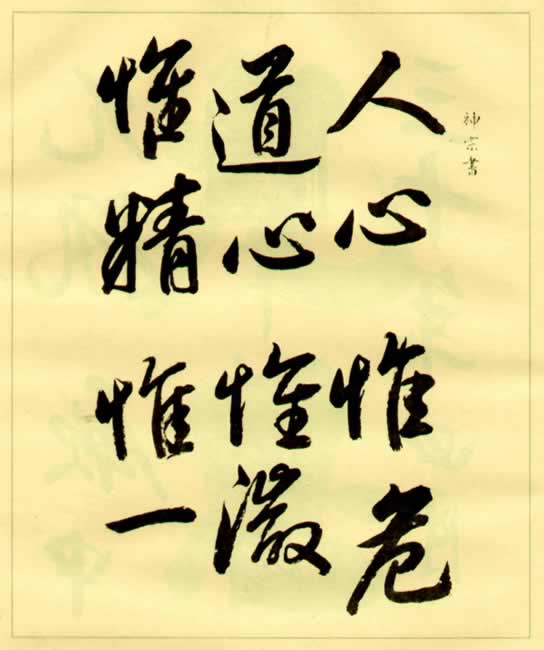 神宗書
人心惟危
道心惟微
惟精惟一